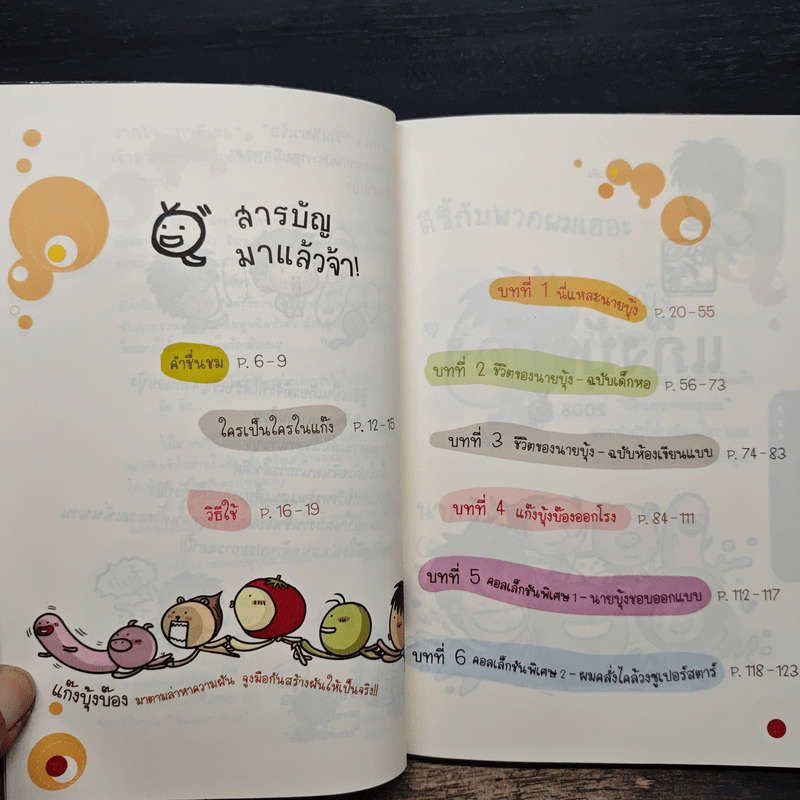 สารบัญ
มาแล้วจ้า!
คำชื่นชม P. 6-9
ใครเป็นใครในแก๊ง P. 12-15
วิธีใช้ P. 16-19
แก๊งบุ้งบ๊อง มาตามล่าหาความฝัน จูงมือกันสร้างฝันให้เป็นจริง!!
บทที่ 1 นี่แหละนายบุ้ง P. 20-55
บทที่ 2 ชีวิตของนายบุ้ง - ฉบับเด็กหอ P. 56-73
บทที่ 3 ชีวิตของนายบุ้ง - ฉบับห้องเขียนแบบ P. 74-83
บทที่ 4 แก๊งบุ้งบ๊องออกโรง P. 84-111
บทที่ 5 คอลเล็กชันพิเศษ 1 - นายบุ้งชอบออกแบบ P. 112-117
บทที่ 6 คอลเล็กชันพิเศษ 2 - ผมคลั่งไคล้วงซูเปอร์สตาร์ P. 118-123